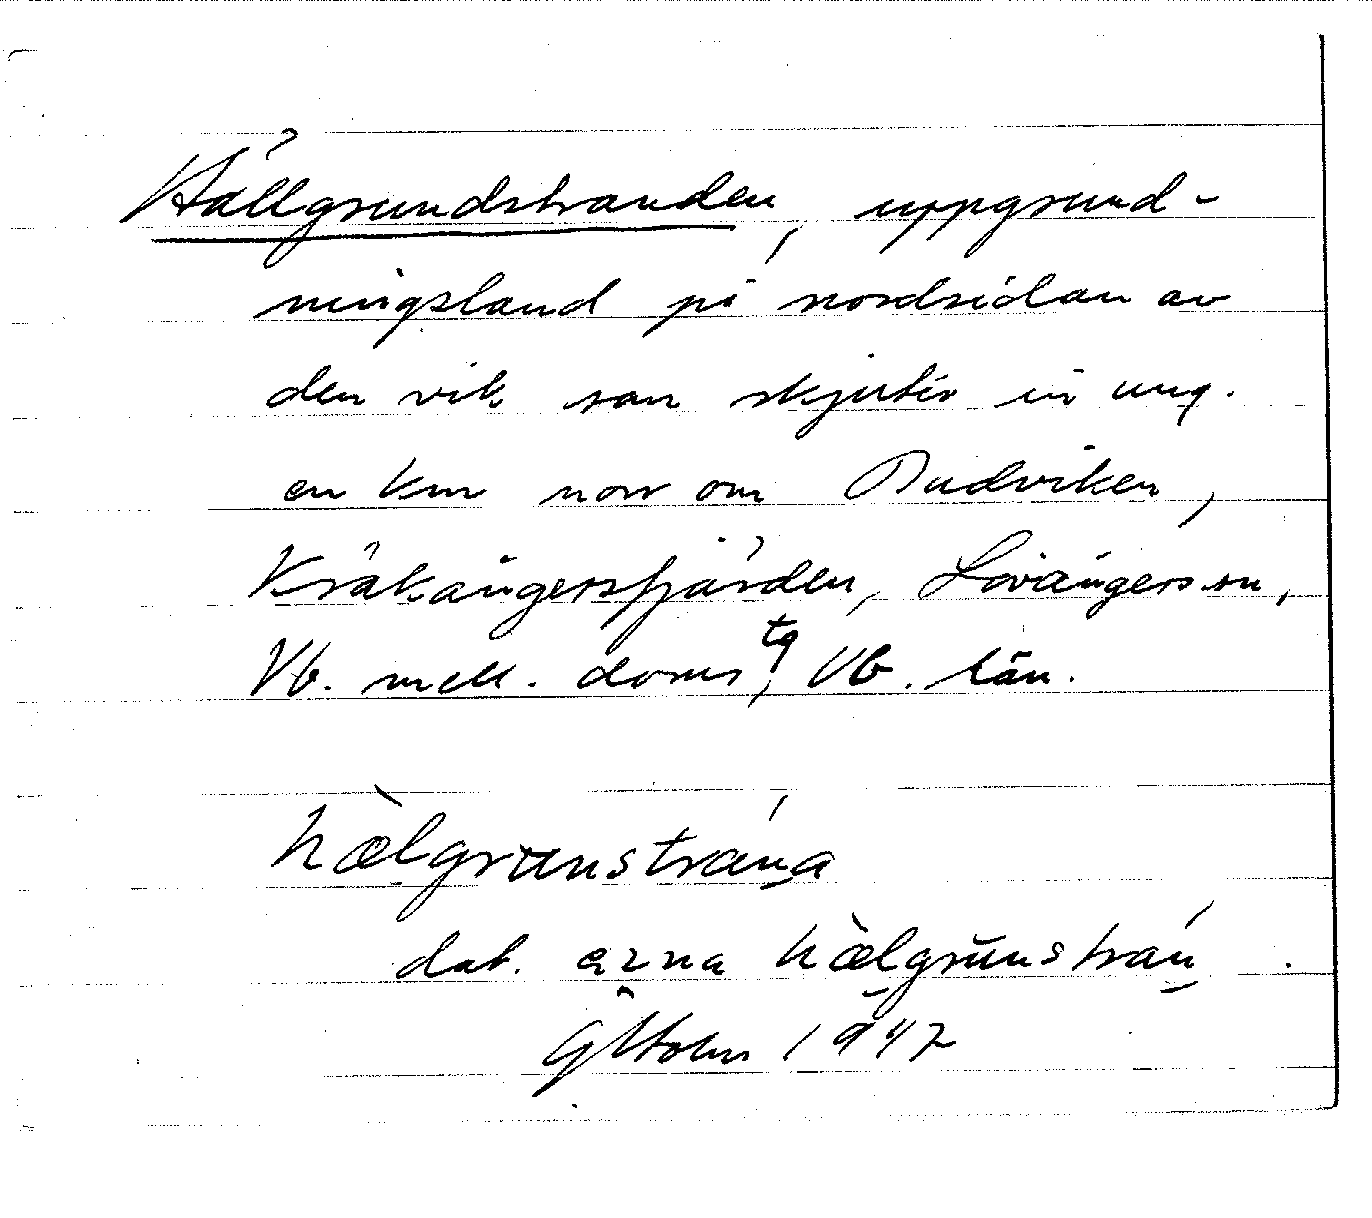 Hällgrundstranden, uppgrund-
ningsland på nordsidan av
den vik som skjuter in ung.
en km norr om Budviken,
Kråkångersfjärden, Lövångers sn,
Vb. mell. doms tg, Vb. län.
hælgrunstrána
dat. hælgrunstrán
GHolm 1947